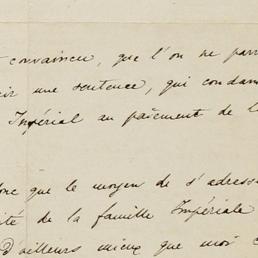 convaincu, que l'on ne parv
ir une sentence, qui condam
Impérial au paiement de l
onc que le moyen de s'adress
ité de la famille Impériale
d'ailleurs mieux que moi c